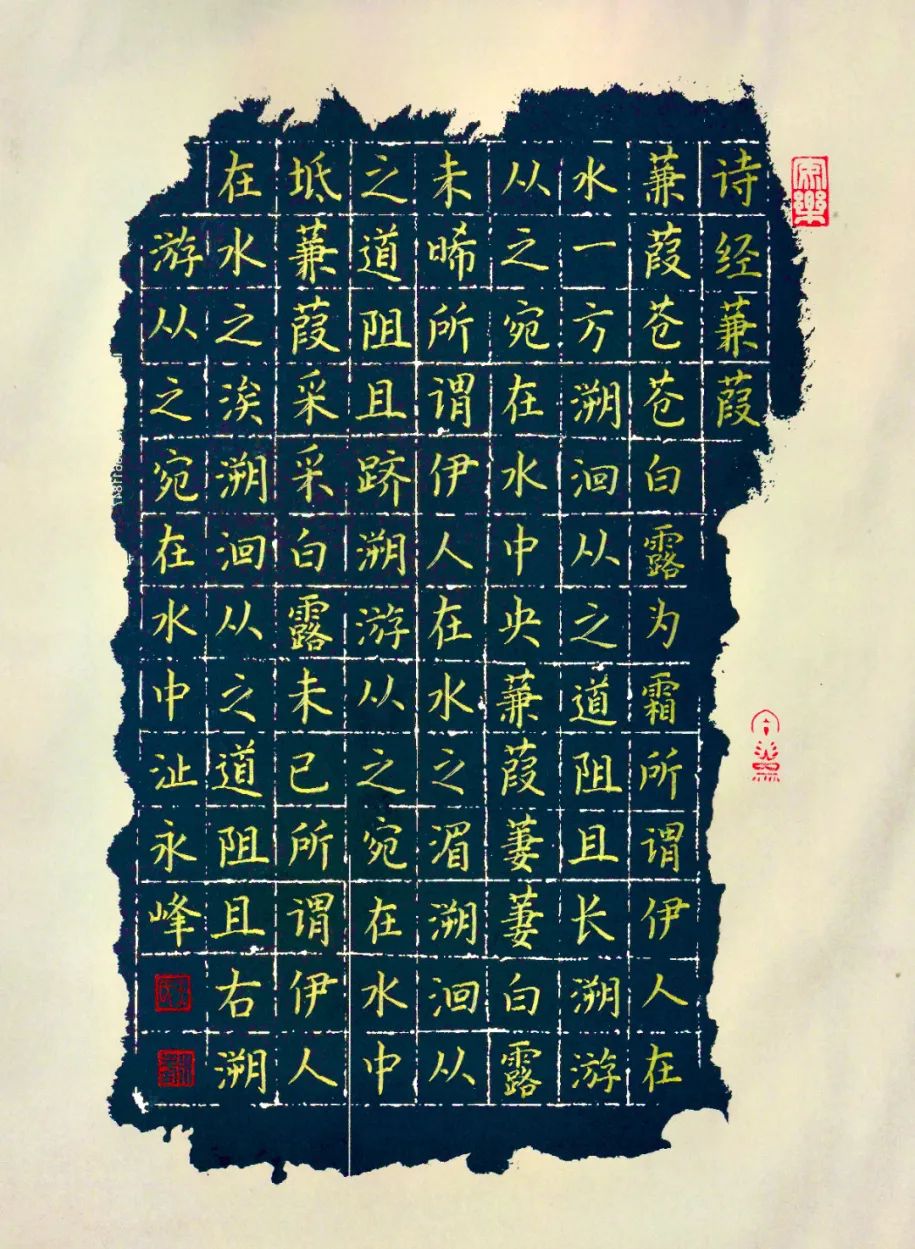 诗经蒹葭
蒹葭苍苍白露为霜所谓伊人在
水一方溯洄从之道阻且长溯游
从之宛在水中央蒹葭萋萋白露
未晞所谓伊人在水之湄溯洄从
之道阻且跻溯游从之宛在水中
坻蒹葭采采白露未已所谓伊人
在水之涘溯洄从之道阻且右溯
游从之宛在水中沚永峰